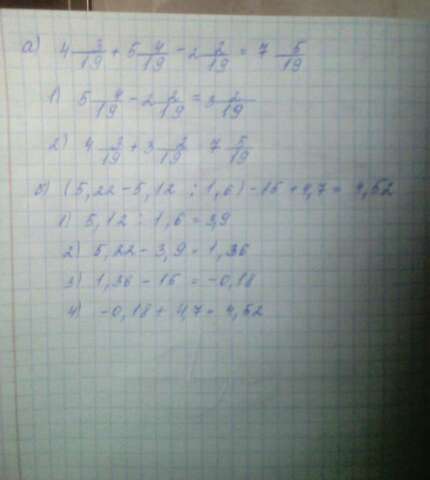 а) 4 3/19 + 5 4/19 - 2 2/19 = 7 5/19
1) 5 4/19 - 2 2/19 = 3 2/19
2) 4 3/19 + 3 2/19 7 5/19
б) (5,22 - 5,12 : 1,6) - 15 + 4,7 = 4,52
1) 5,12 : 1,6 = 3,9
2) 5,22 - 3,9 = 1,36
3) 1,36 - 15 = -0,18
4) -0,18 + 4,7 = 4,52